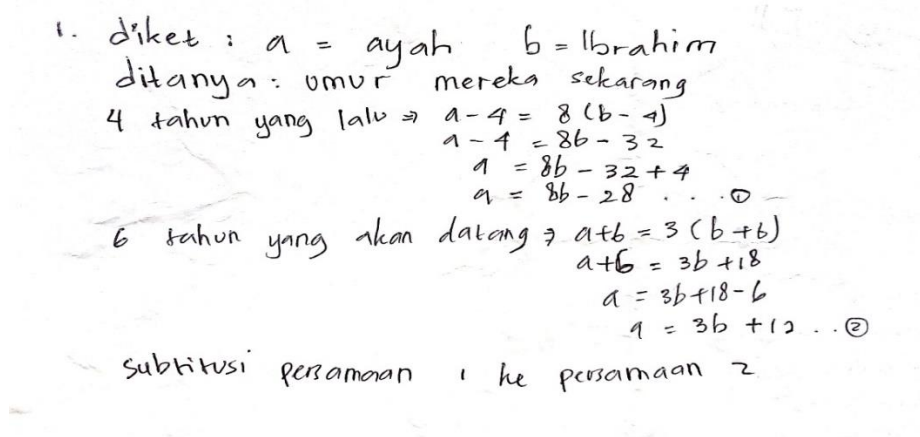 1. diket : a = ayah b = Ibrahim
ditanya : umur mereka sekarang
4 tahun yang lalu ⇒ a - 4 = 8 (b - 4)
a - 4 = 8b - 32
a = 8b - 32 + 4
a = 8b - 28 . . . ①
6 tahun yang akan datang ⇒ a+6 = 3 (b+6)
a+6 = 3b +18
a = 3b+18-6
a = 3b +12 . . ②
subtitusi persamaan 1 ke persamaan 2